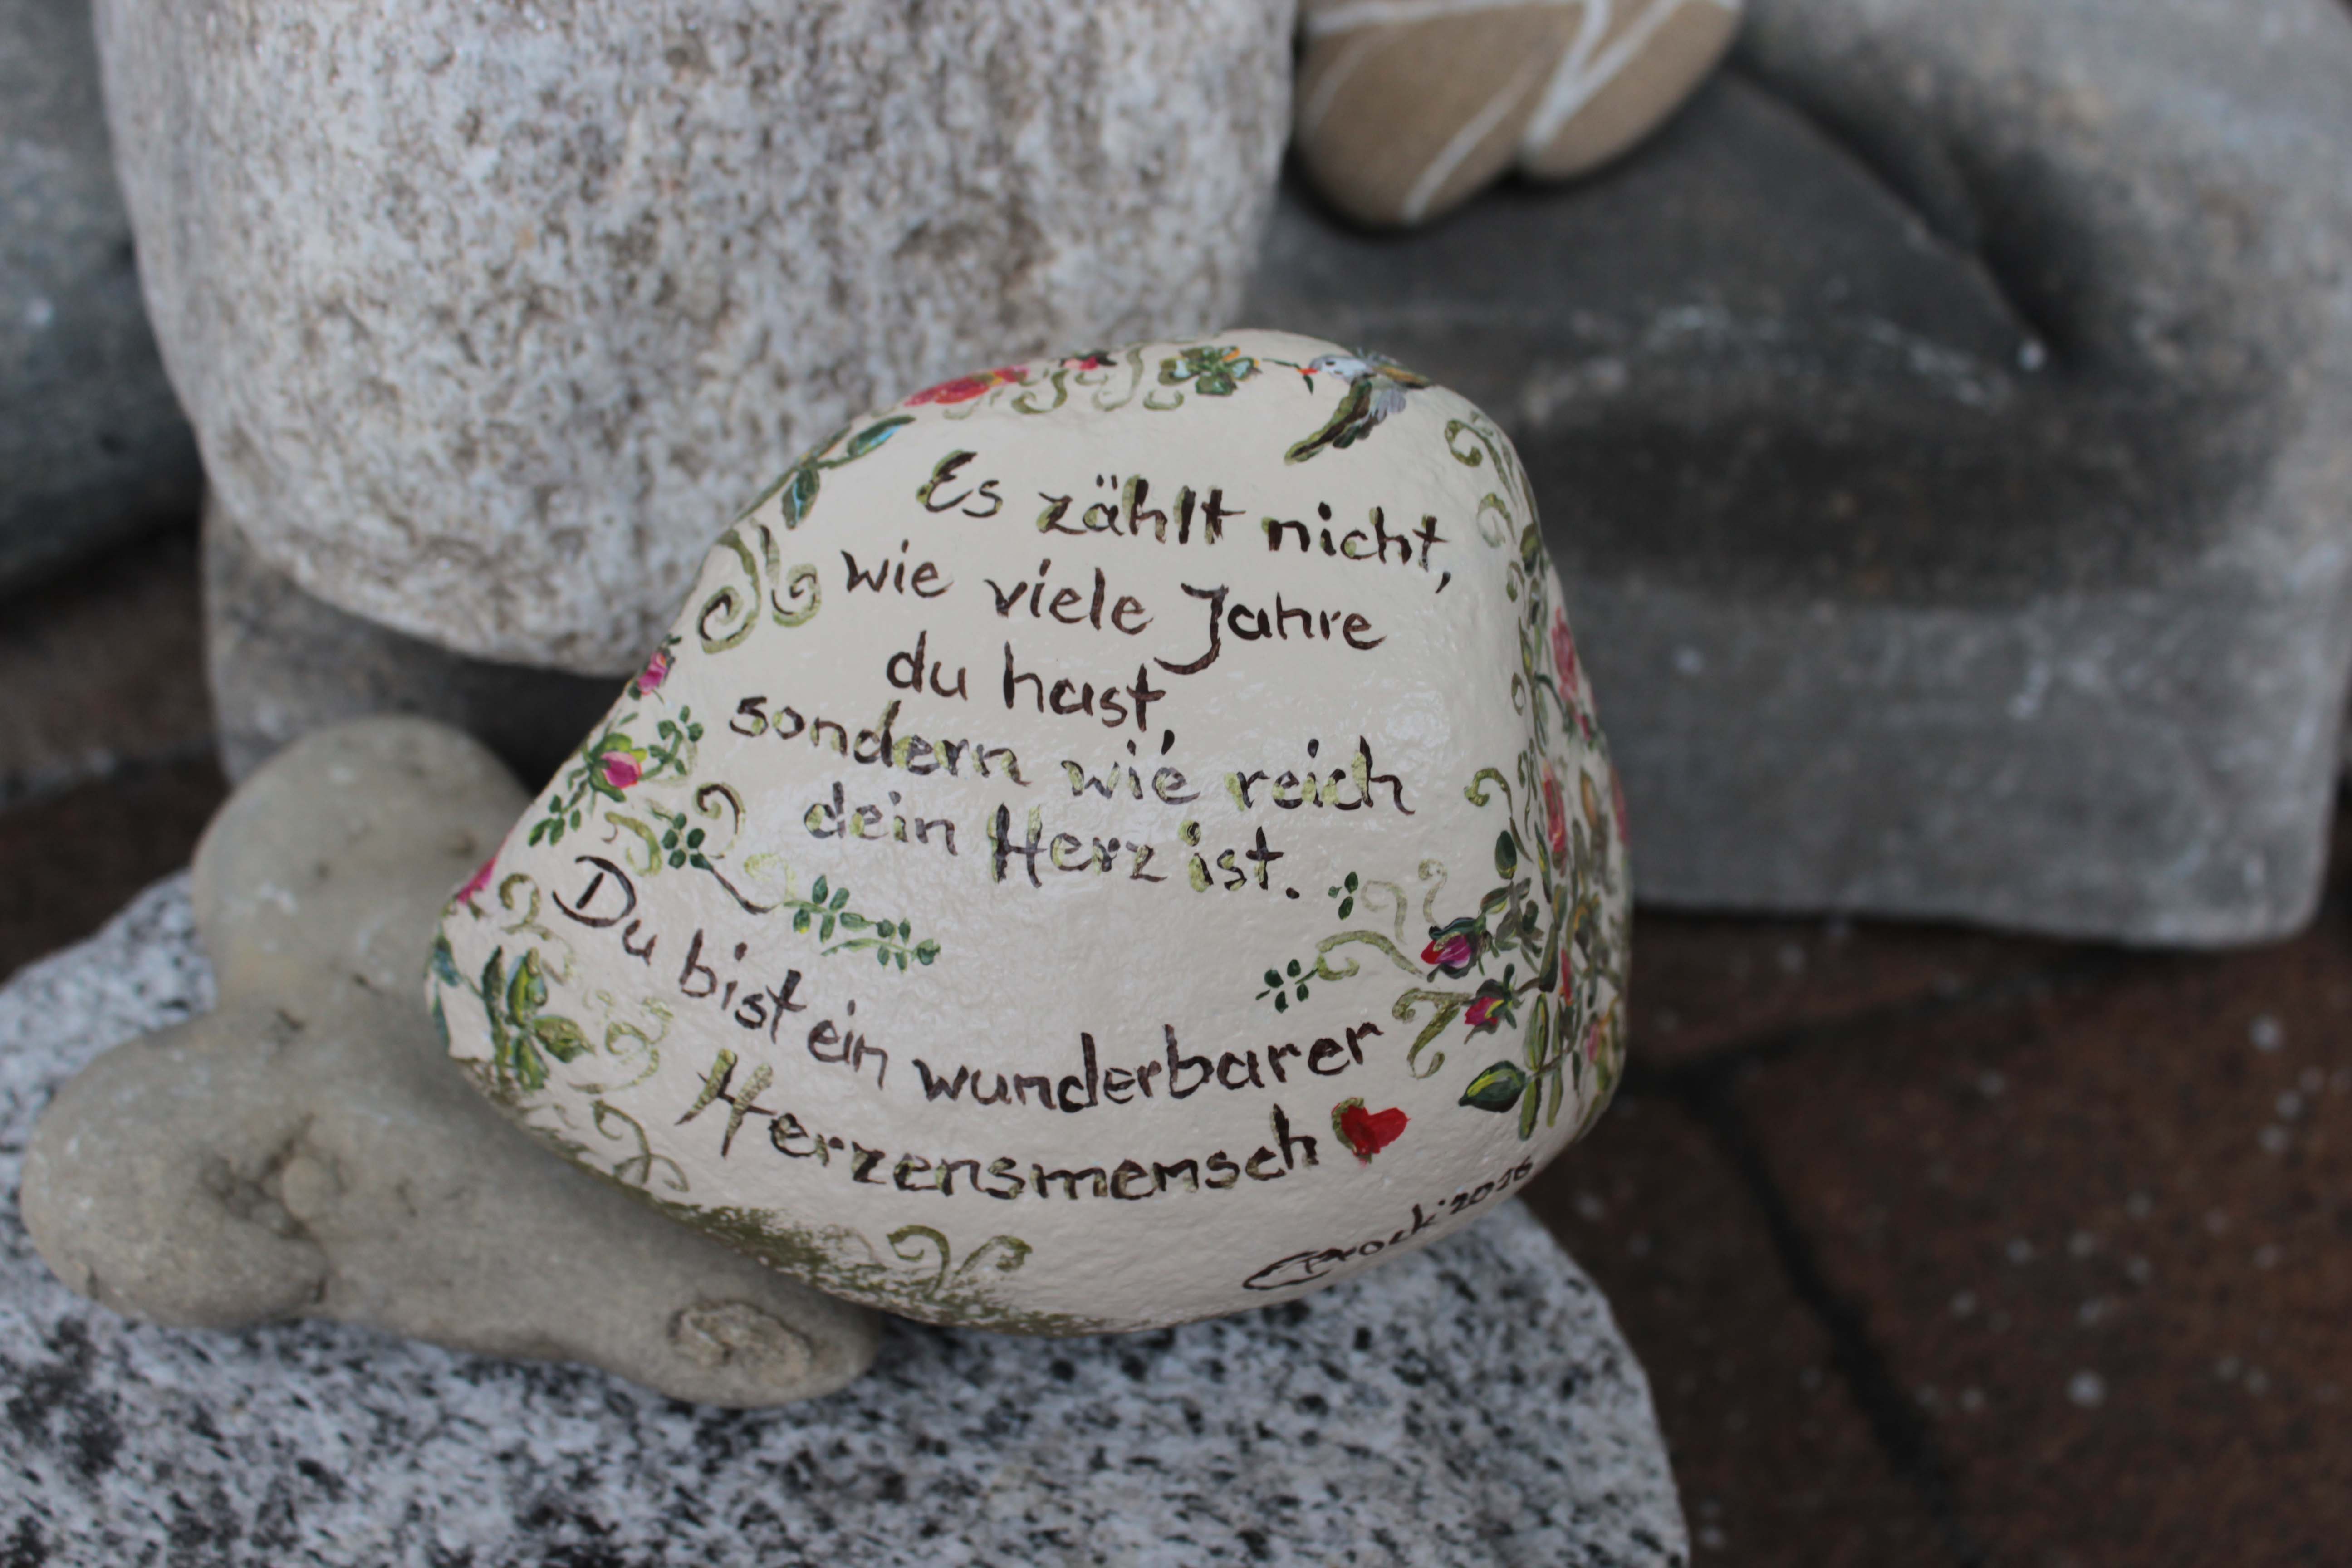 Es zählt nicht,
wie viele Jahre
du hast,
sondern wie reich
dein Herz ist.
Du bist ein wunderbarer
Herzensmensch